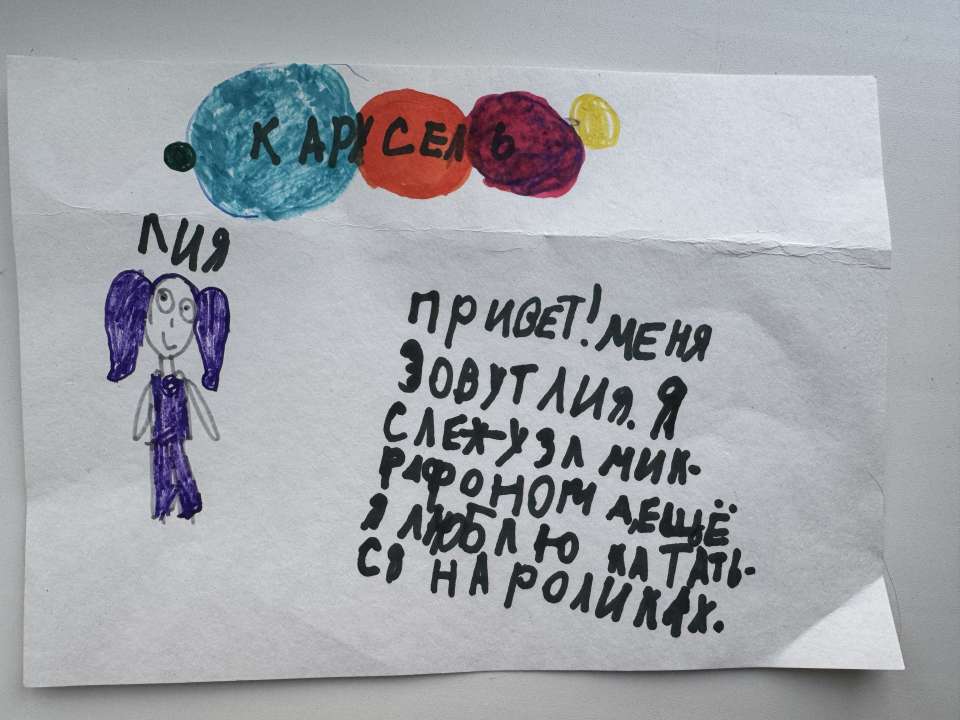 КАРУСЕЛЬ
ЛИЯ
ПРИВЕТ! МЕНЯ
ЗОВУТ ЛИЯ. Я
СЛЕЖУ ЗА МИК-
РАФОНОМ А ЕЩЁ
Я ЛЮБЛЮ КАТАТЬ-
СЯ НА РОЛИКАХ.